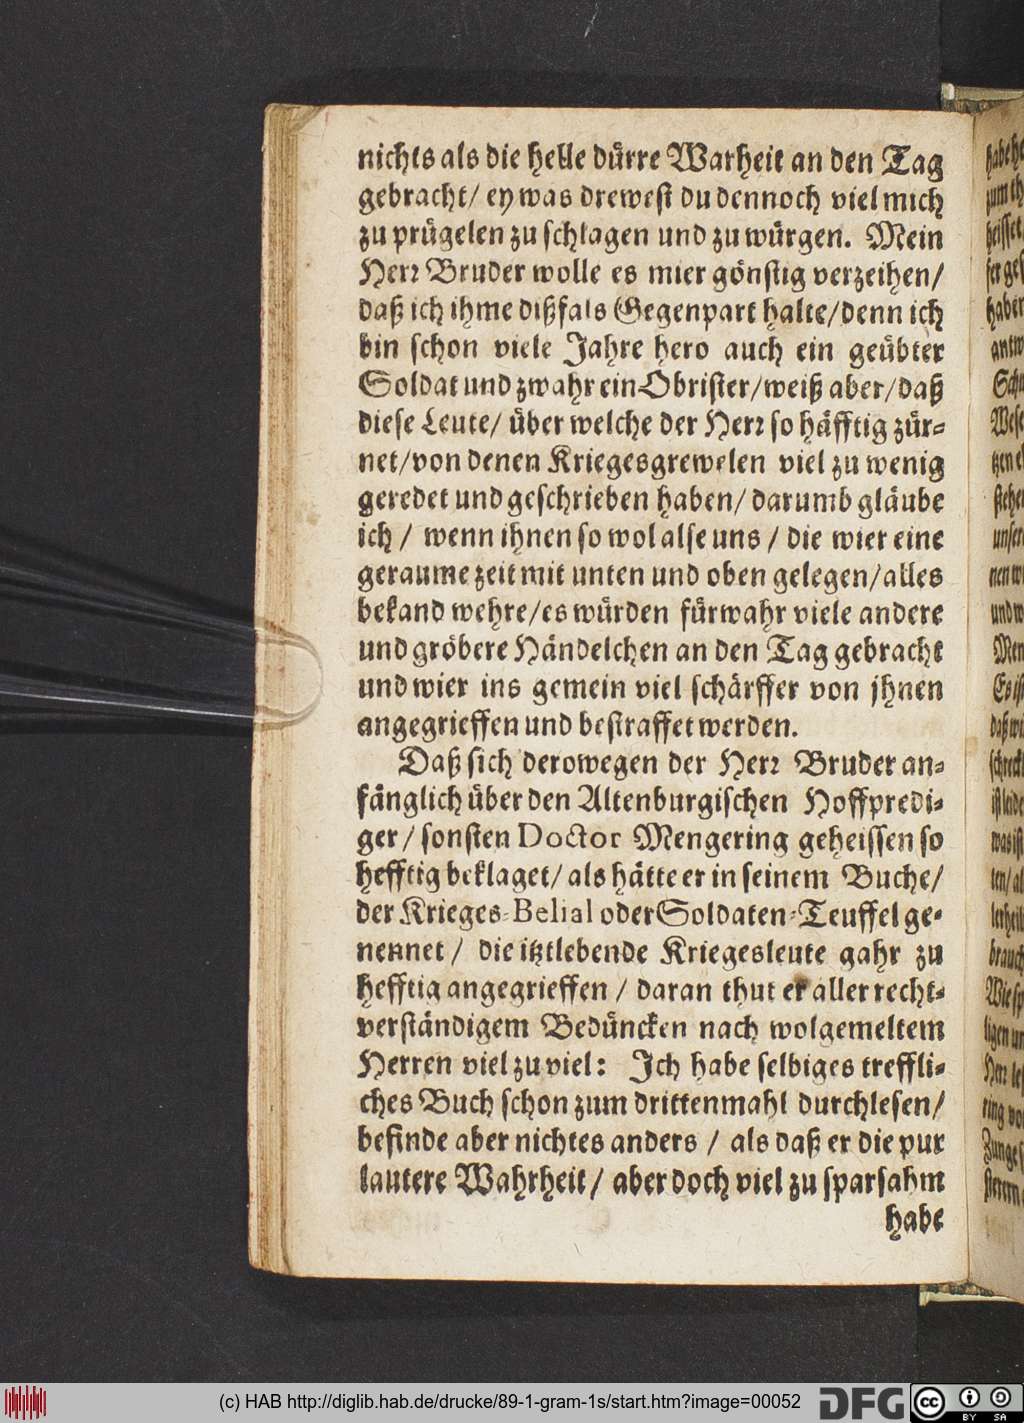 nichts als die helle dürre Warheit an den Tag
gebracht/ ey was drewest du dennoch viel mich
zu prügelen zu schlagen und zu würgen. Mein
Herr Bruder wolle es mier gönstig verzeihen/
daß ich ihme dißfals Gegenpart halte/denn ich
bin schon viele Jahre hero auch ein geübter
Soldat und zwahr ein Obrister/weiß aber/daß
diese Leute/ über welche der Herr so häfftig zür-
net/von denen Kriegesgrewelen viel zu wenig
geredet und geschrieben haben/ darumb gläube
ich / wenn ihnen so wol alse uns / die wier eine
geraume zeit mit unten und oben gelegen/alles
bekand wehre/es würden fürwahr viele andere
und gröbere Händelchen an den Tag gebracht
und wier ins gemein viel schärffer von jhnen
angegrieffen und bestraffet werden.
Daß sich derowegen der Herr Bruder an-
fänglich über den Altenburgischen Hoffpredi-
ger/ sonsten Doctor Mengering geheissen so
hefftig beklaget/ als hätte er in seinem Buche/
der Krieges-Belial oder Soldaten-Teuffel ge-
nennet / die itztlebende Kriegesleute gahr zu
hefftig angegrieffen / daran thut er aller recht-
verständigem Bedüncken nach wolgemeltem
Herren viel zu viel: Ich habe selbiges treffli-
ches Buch schon zum drittenmahl durchlesen/
befinde aber nichtes anders / als daß er die pur
lautere Wahrheit/ aber doch viel zu sparsahm
habe
(c) HAB http://diglib.hab.de/drucke/89-1-gram-1s/start.htm?image=00052
DFG
cc BY SA